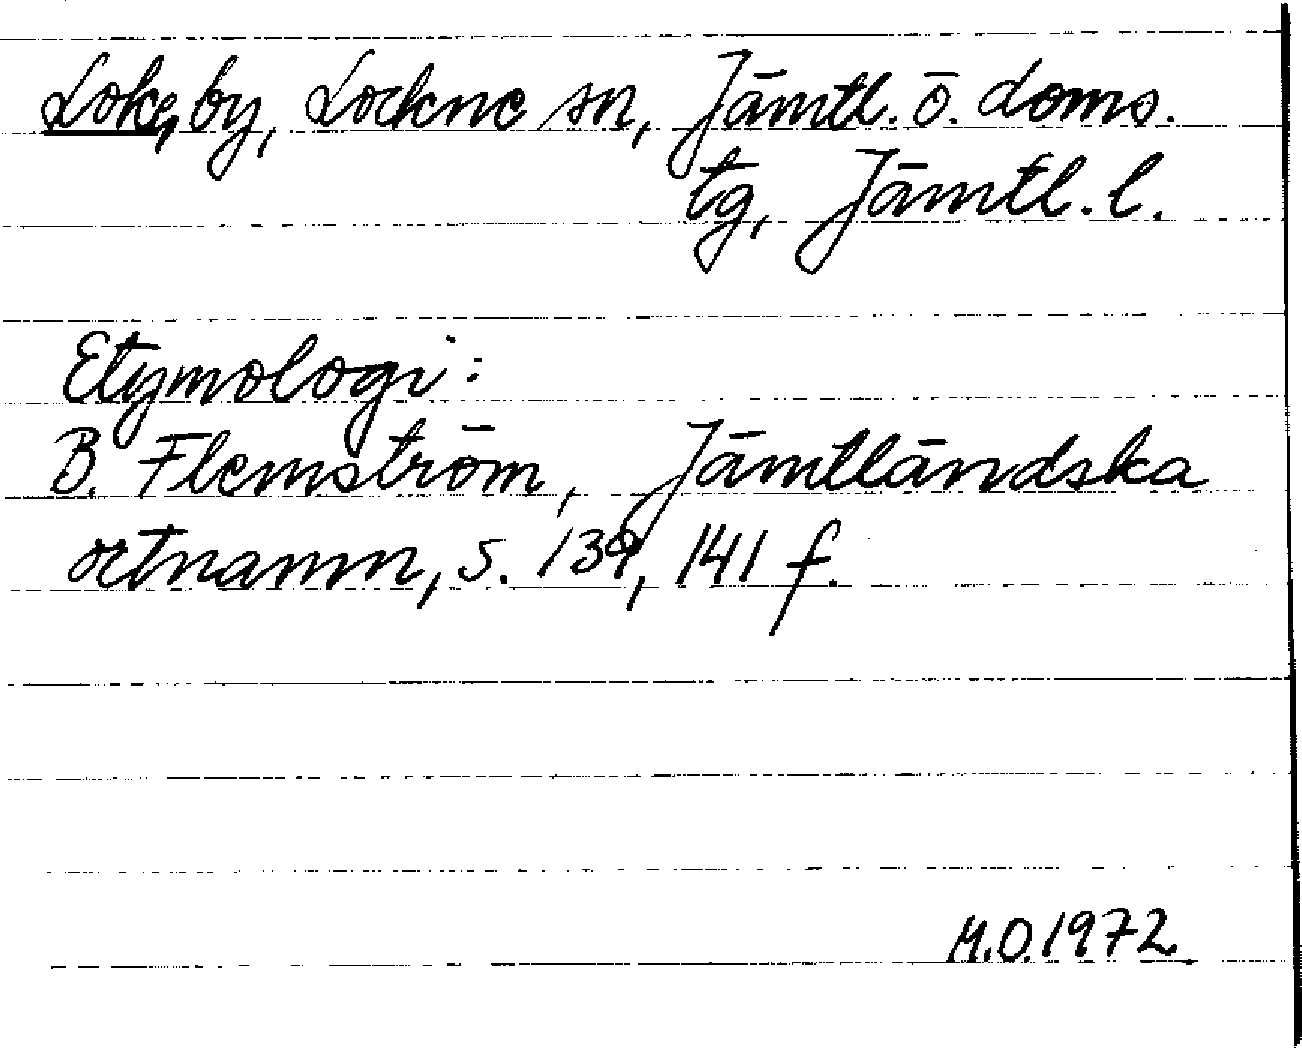 Loke, by, Lockne sn, Jämtl. ö. doms.
tg, Jämtl. l.
Etymologi:
B. Flemström, Jämtländska
ortnamn, s. 139, 141 f.
M.O. 1972